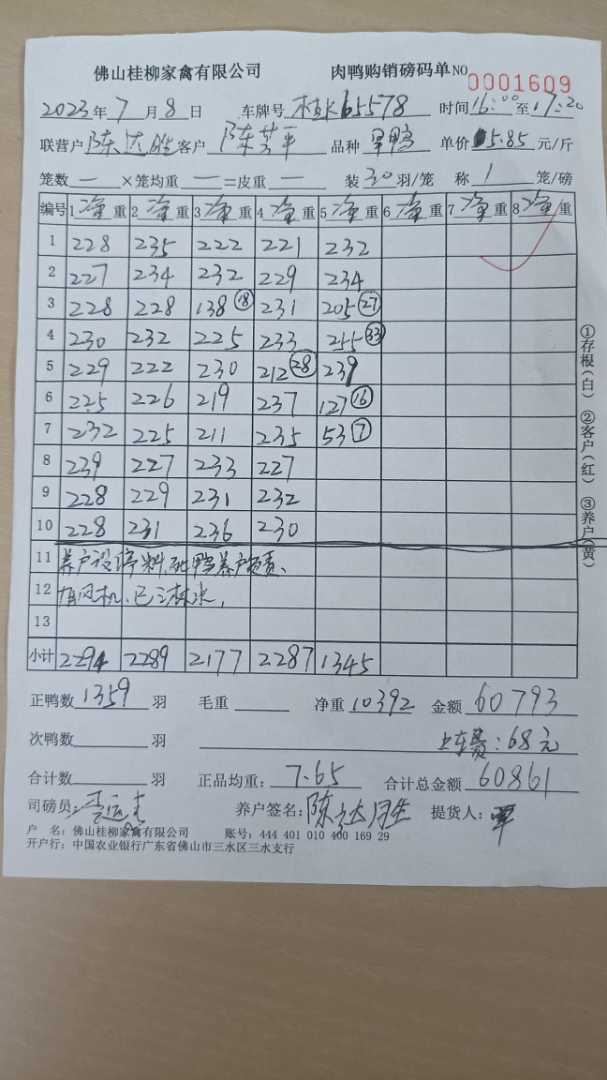 佛山桂柳家禽有限公司 肉鸭购销磅码单 NO 0001609
2023年7月8日 车牌号 65578 时间 16:00至17:20
联营户 陈达胜 客户 陈芳平 品种 鸭 单价 5.85 元/斤
笼数 — ×笼均重 — =皮重 — 装 30 羽/笼 称 1 笼/磅
编号 1净重 2净重 3净重 4净重 5净重 6净重 7净重 8净重
1 228 235 222 221 232
2 227 234 232 229 234
3 228 228 138⑱ 231 205㉗
4 230 232 225 233 255㉝
5 229 222 230 212㉘ 239
6 225 226 219 237 127⑯
7 232 225 211 235 53⑦
8 239 227 233 227
9 228 229 231 232
10 228 231 236 230
11 养户没停料,死鸭养户负责、
12 有风机、已淋水,
13
小计 2294 2289 2177 2287 1345
正鸭数 1359 羽 毛重 净重 10392 金额 60793
次鸭数 羽 上车费:68元
合计数 羽 正品均重: 7.65 合计总金额 60861
司磅员: 养户签名: 陈达胜 提货人:
户 名: 佛山桂柳家禽有限公司 账号: 444 401 010 400 169 29
开户行: 中国农业银行广东省佛山市三水区三水支行
①存根(白) ②客户(红) ③养户(黄)